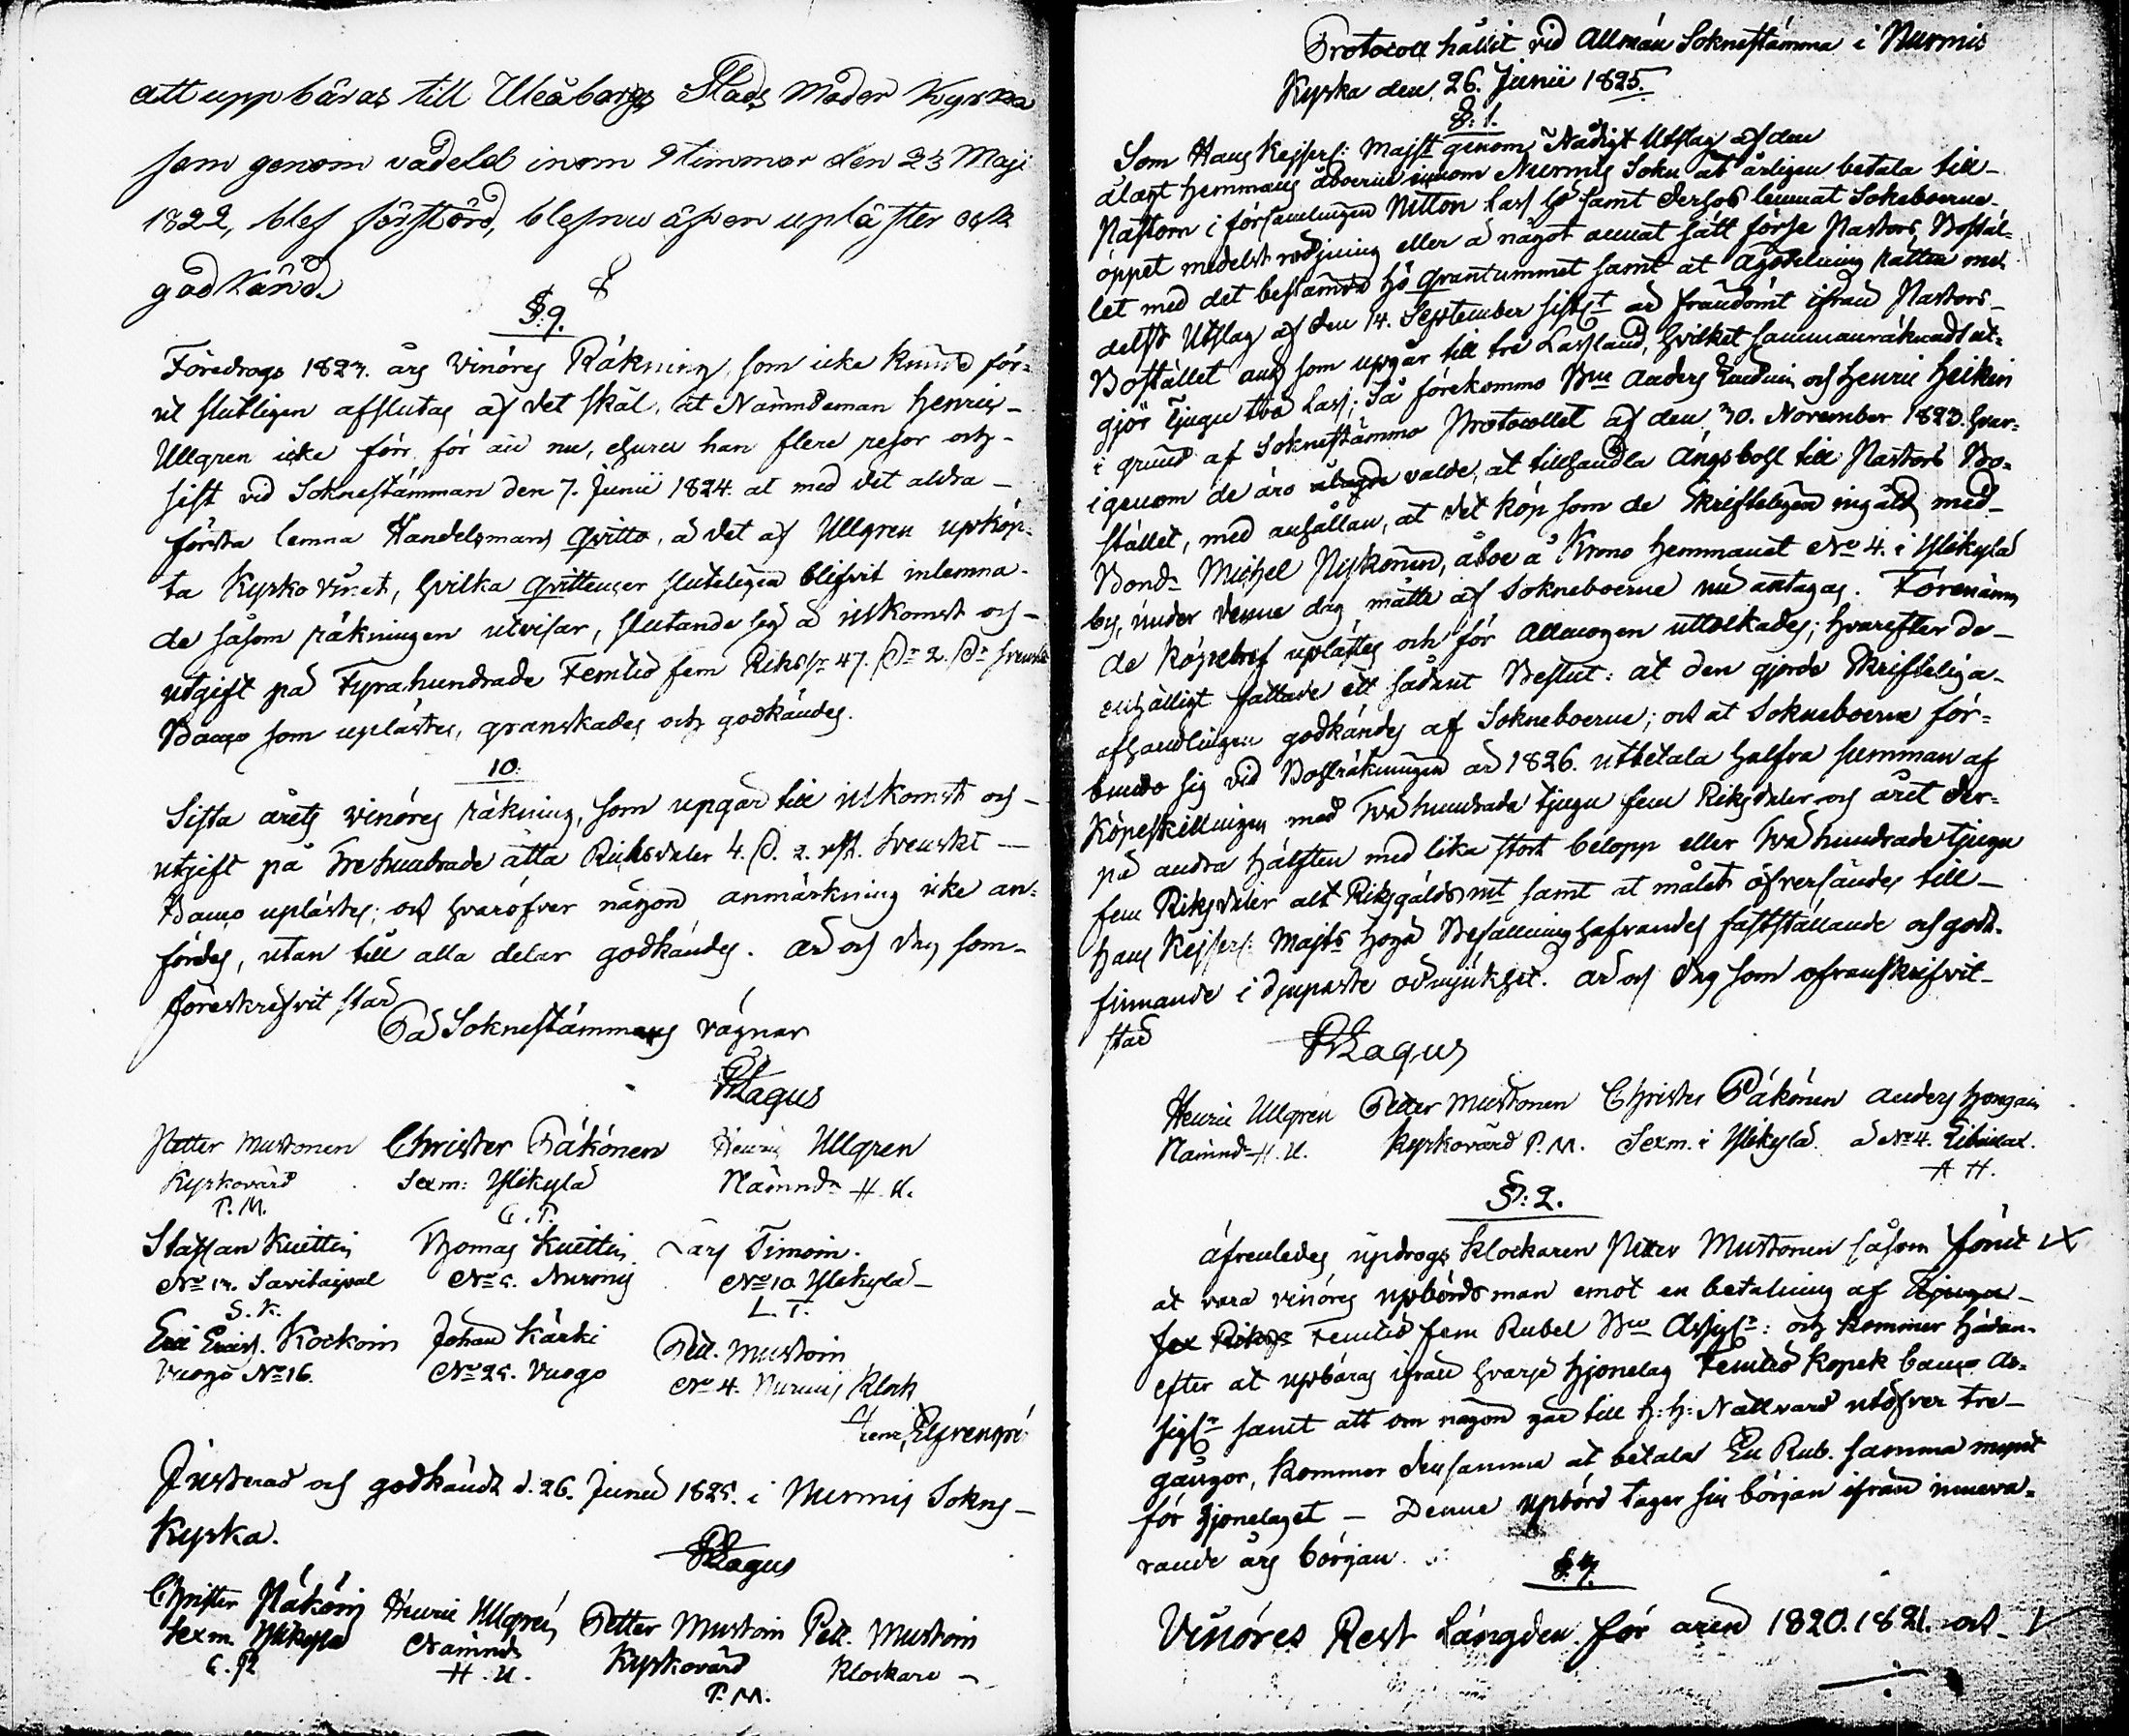 att uppbäras till Uleåborgs Stads Moder Kyrka
som genom vådeld inom 9 timmar den 23 Maji
1822, blef förstörd, blef nu äfven upläster och
godkänd.
§: 9.
Föredrogs 1823. års Vinöres Räkning, som icke kunde för-
ut slutligen afslutas af det skäl, at Nämndeman Henric
Ullgren icke förr, för än nu, ehuru han flere resor och
sist vid Soknestämman den 7. Junii 1824. at med det aldra
första lemna Handelsmans qvitto, å det af Ullgren upköp-
ta Kyrko Vinet, hvilka qvittencer sluteligen blifvit inlemna-
de såsom räkningen utvisar, slutande sig å inkomst och
utgift på Fyrahundrade Femtio fem Riksdr 47. s. 2. r. svenskt
Banco som uplästes, granskades och godkändes.
10.
Sista årets vinöres räkning, som upgår till inkomst och
utgift på Trehundrade åtta Riksdaler 4. s. 2. rst. Svenskt
Banco uplästes; och hvaröfver någon anmärkning icke an-
fördes, utan till alla delar godkändes. År och dag som
föreskrifvit står
På Soknestämmans vägnar
Lagus
Petter Mustonen Christer Päkönen Henric Ullgren
Kyrkovärd Sexm: Ylikylä Nämndn H. U.
P. M. C. P.
Staffan Kuittin Thomas Kuittin Lars Timoin.
No 13. Savikaival No 5. Nurmis No 10 Ylikylä
S. K. L. T.
Eric Erics. Kockoin Johan Kärki Pett. Mustoin
Vuogo No 16. No 25. Vuogo No 4. Nurmis Klock
Justerad och godkändt d. 26. Junii 1825. i Nurmis Sokns
Kyrka.
Lagus
Christer Päköin Henric Ullgren Petter Mustoin Pett. Mustoin
Sexm. Ylikylä Nämnds Kyrkovärd Klockare
C. P. H. U. P. M.
Protocoll hållit vid Allmän Soknestämma i Nurmis
Kyrka den 26. Junii 1825.
§: 1.
Som Hans Kejserl: Majst genom Nådigt Utslag af den
ålagt Hemmans åboerne inom Nurmis Sokn at årligen betala till
Pastorn i församlingen Nitton lass hö samt dersos lemnat Sokneboerne
öppet medelst rödjning eller å något annat sätt förse Pastors Bostäl-
let med det bestämda hö qvantummet samt at Ägodelning Rätten me-
delst Utslag af den 14. September sistl. år fråndömt ifrån Pastors
Bostället äng som upgår till tre Lassland, hvilket sammanräknadt ut-
gjör Tjugu två lass; Så förekommo Bne Anders Gardin och Henric Heikin
i grund af Soknestämmo Protocollet af den 30. November 1823. hvar-
igenom de äro valde, at tillhandla Ängsbohl till Pastors Bo-
stället, med anhållan, at det köp som de skrifteligen ingått med
Bondn Michel Nykänen, åboe å Krono Hemmanet No 4. i Ylikylä
by, under denne dag måtte af Sokneboerne nu antagas. Förenämn
de Köpebref uplästes och för Allmogen uttolkades; hvarefter de
enhälligt fattade ett sådant Beslut: at den gjorde skriftliga
afhandlingen godkändes af Sokneboerne; och at Sokneboerne för-
bundo sig vid Bosträkningen år 1826. utbetala halfva summan af
Köpeskillingen med Två hundrade tjugu fem Riksdaler och året der-
på andra hälften med lika stort belopp eller Två hundrade tjugu
fem Riksdaler allt Riksgälds mt samt at målet öfversändes till
Hans Kejserl: Majts höga Befallningshafvandes fastställande och godt-
finnande i djupaste ödmjukhet. År och dag som ofvanskrifvit
står
Lagus
Henric Ullgren Petter Mustonen Christer Päkönen Anders Hongain
Nämnd. H. U. Kyrkovärd P. M. Sexm. i Ylikylä å No 4.
A H.
§: 2.
Äfvenledes updrogs Klockaren Petter Mustonen såsom förut
at vara vinöres upbördsman emot en betalning af Tjugu
sex Riksd Femtio fem Rubel Bco Assign: och kommer hädan-
efter at upbäras ifrån hvarje hjonelag Femtio Kopek banco As-
sign samt att om någon går till H: H: Nattvard utöfver tre
gångor, kommer densamma at betala En Rub. samma mynt
för hjonelaget — Denne upbörd tager sin början ifrån inneva-
rande års början.
§: 3.
Vinöres Rest Längden för åren 1820. 1821. och